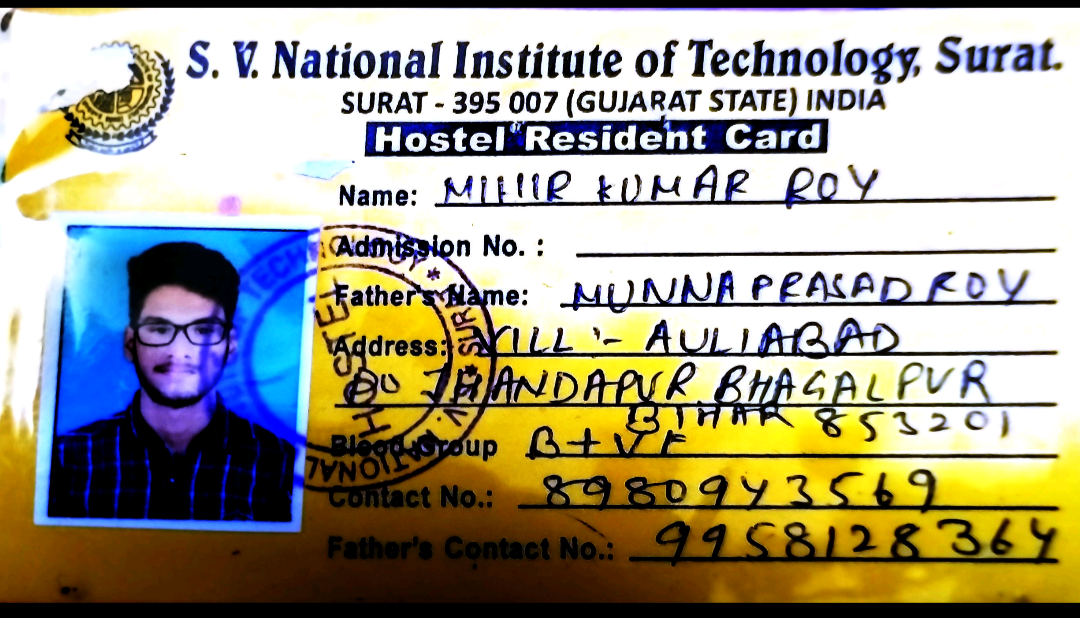 S. V. National Institute of Technology, Surat.
SURAT - 395 007 (GUJARAT STATE) INDIA
Hostel Resident Card
Name: MIHIR KUMAR ROY
Admission No. :
Father's Name: MUNNA PRASAD ROY
Address: VILL :- AULIABAD
JHANDAPUR BHAGALPUR
BIHAR 853201
Blood Group B+VE
Contact No.: 8980943569
Father's Contact No.: 9958128364
HOSTEL
NATIONAL
TECHNOLOGY * SURAT